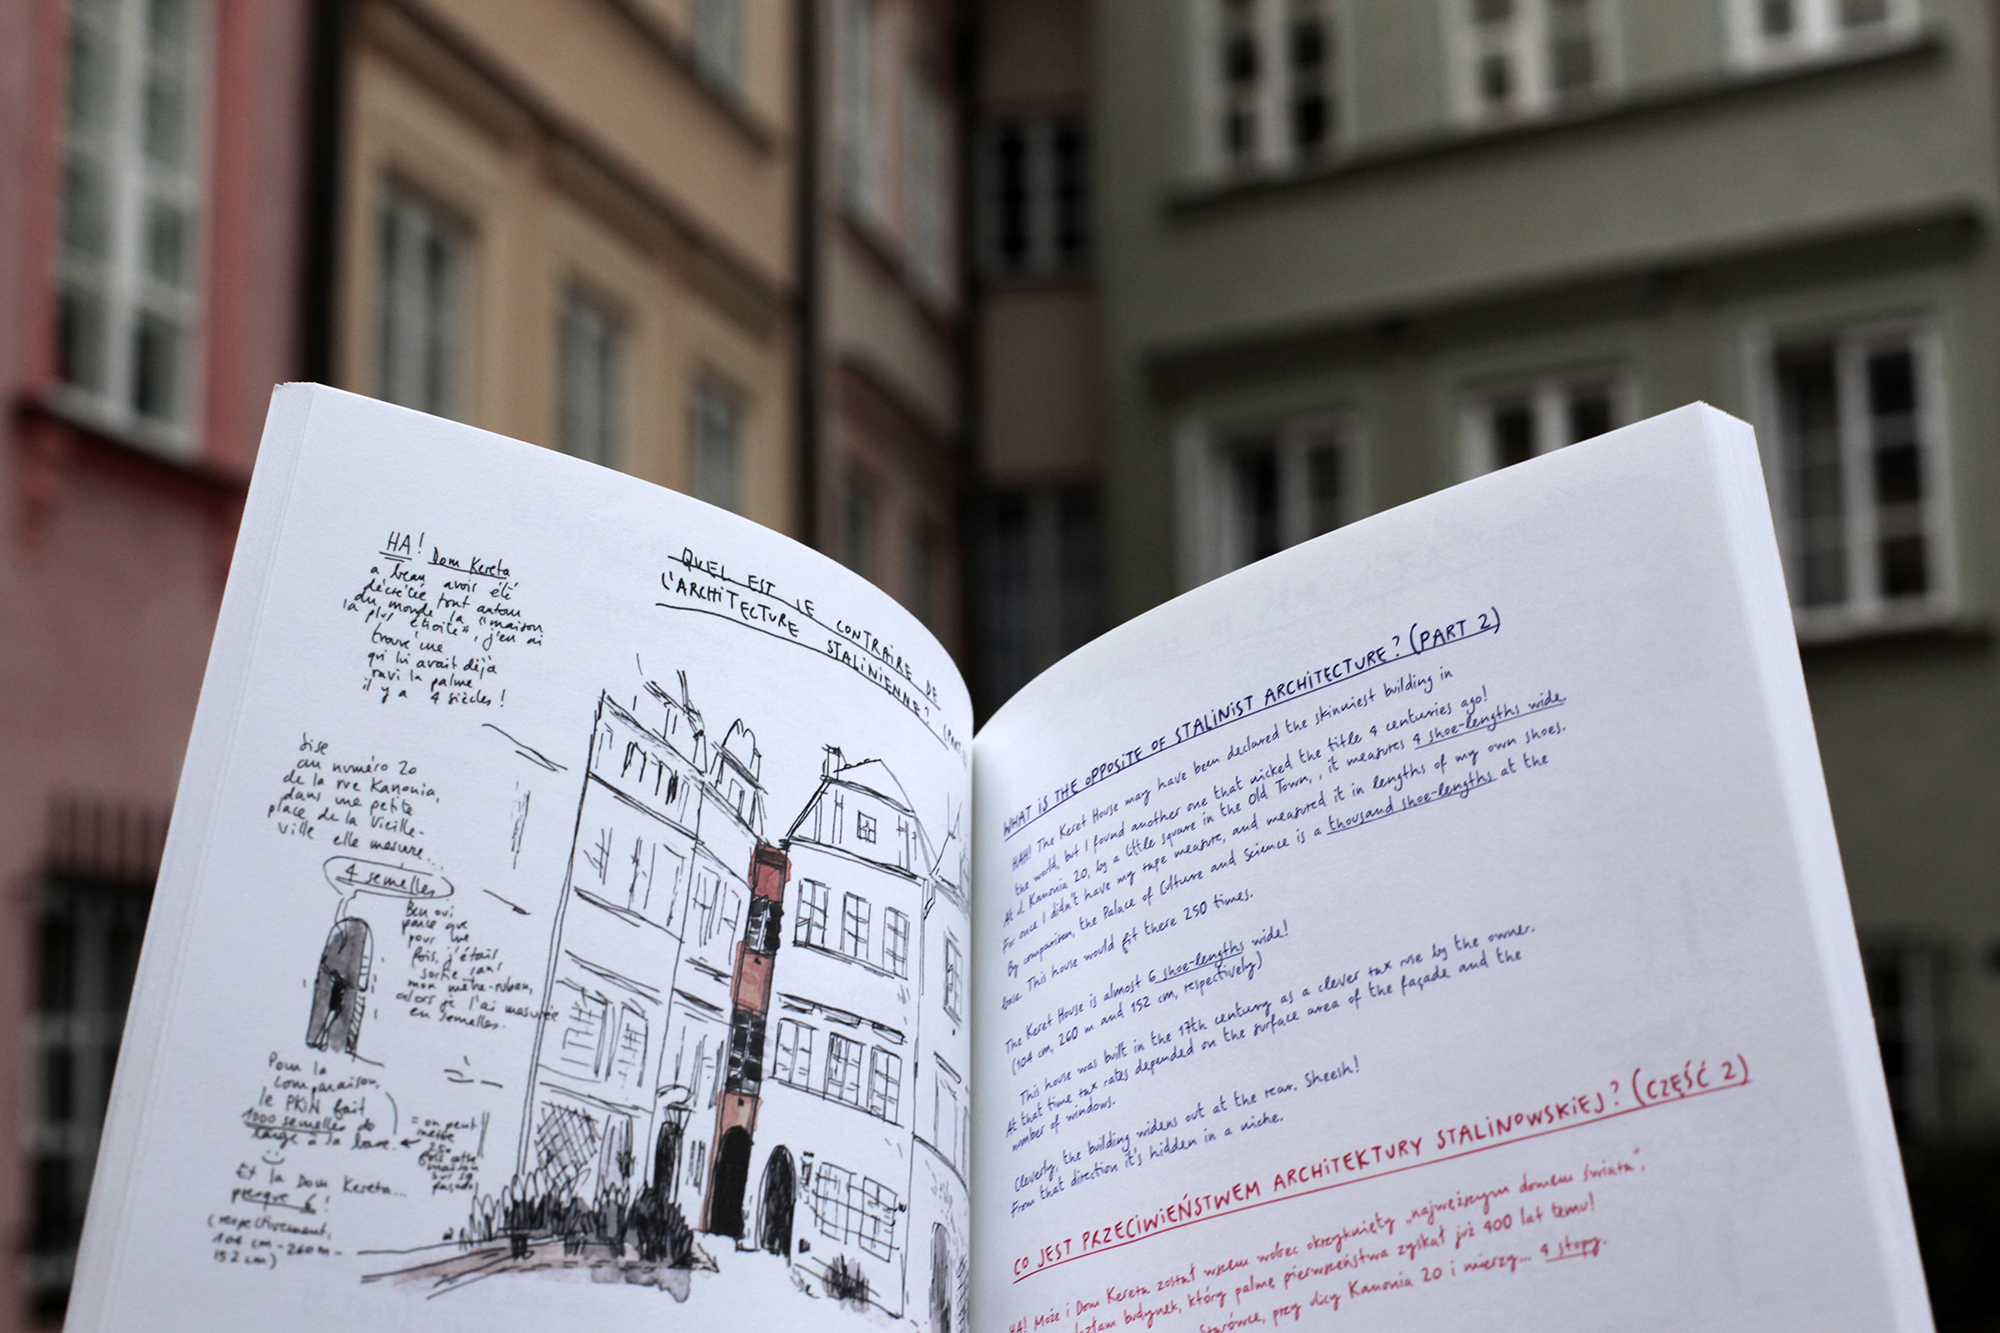 HA! Dom Kereta
a beau avoir été
décrétée tout autour
du monde la "maison
la plus étroite", j'en ai
trouvé une
qui lui avait déjà
ravi la palme
il y a 4 siècles !
QUEL EST LE CONTRAIRE DE
L'ARCHITECTURE STALINIENNE ? (PART
Sise
au numéro 20
de la rue Kanonia,
dans une petite
place de la Vieille-
ville elle mesure...
4 semelles
Ben oui
parce que
pour une
fois, j'étais
sortie sans
mon mètre-ruban,
alors je l'ai mesurée
en semelles.
Pour la
comparaison,
le PKiN fait
1000 semelles de
large à sa base.
= on peut
mettre
250
fois cette
maison
sur sa
façade!
Et la Dom Kereta...
presque 6 !
(respectivement,
104 cm - 260 m -
152 cm)
WHAT IS THE OPPOSITE OF STALINIST ARCHITECTURE? (PART 2)
HAH! The Keret House may have been declared the skinniest building in
the world, but I found another one that nicked the title 4 centuries ago!
At ul. Kanonia 20, by a little square in the Old Town, , it measures 4 shoe-lengths wide.
For once I didn't have my tape measure, and measured it in lengths of my own shoes.
By comparison, the Palace of Culture and Science is a thousand shoe-lengths at the
base. This house would fit there 250 times.
The Keret House is almost 6 shoe-lengths wide!
(104 cm, 260 m and 152 cm, respectively)
This house was built in the 17th century as a clever tax ruse by the owner.
At that time tax rates depended on the surface area of the façade and the
number of windows.
Cleverly, the building widens out at the rear. Sheesh!
From that direction it's hidden in a niche.
CO JEST PRZECIWIEŃSTWEM ARCHITEKTURY STALINOWSKIEJ? (CZĘŚĆ 2)
HA! Może i Dom Kereta został wszem wobec okrzyknięty „najwęższym domem świata",
budynek, który palmę pierwszeństwa zyskał już 400 lat temu!
Starówce, przy ulicy Kanonia 20 i mierzy... 4 stopy.